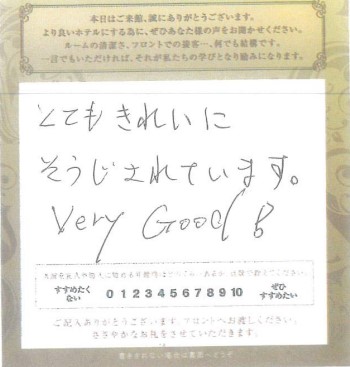 本日はご来館、誠にありがとうございます。
より良いホテルにする為に、ぜひあなた様の声をお聞かせください。
ルームの清潔さ、フロントでの接客…、何でも結構です。
一言でもいただければ、それが私たちの学びとなり励みになります。
とてもきれいに
そうじされています。
Very Good!
すすめたくない 0 1 2 3 4 5 6 7 8 9 10 ぜひすすめたい
ご記入ありがとうございます。フロントへお渡しください。
ささやかなお礼をさせていただきます。